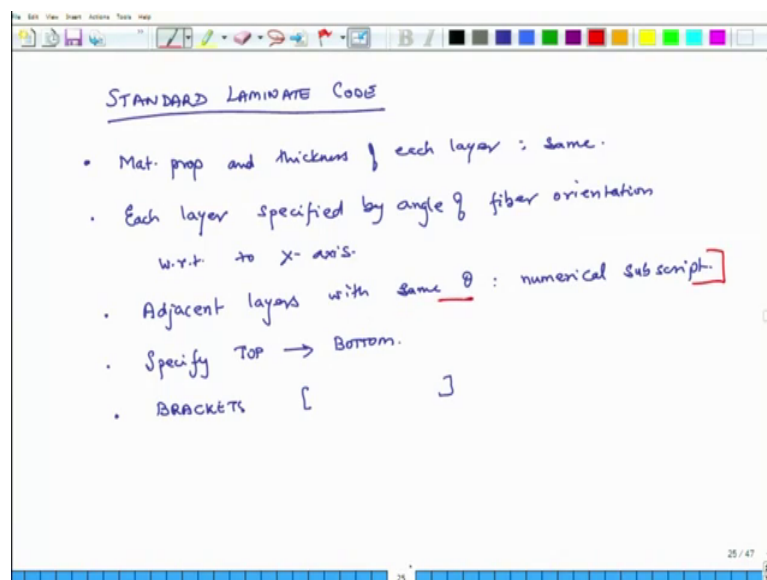 File Edit View Insert Actions Tools Help
B I
STANDARD LAMINATE CODE
• Mat. prop and thickness of each layer : Same.
• Each layer specified by angle of fiber orientation
w.r.t. to X-axis.
• Adjacent layers with same θ : numerical subscript.]
• Specify TOP → BOTTOM.
• BRACKETS [ ]
25 / 47
25